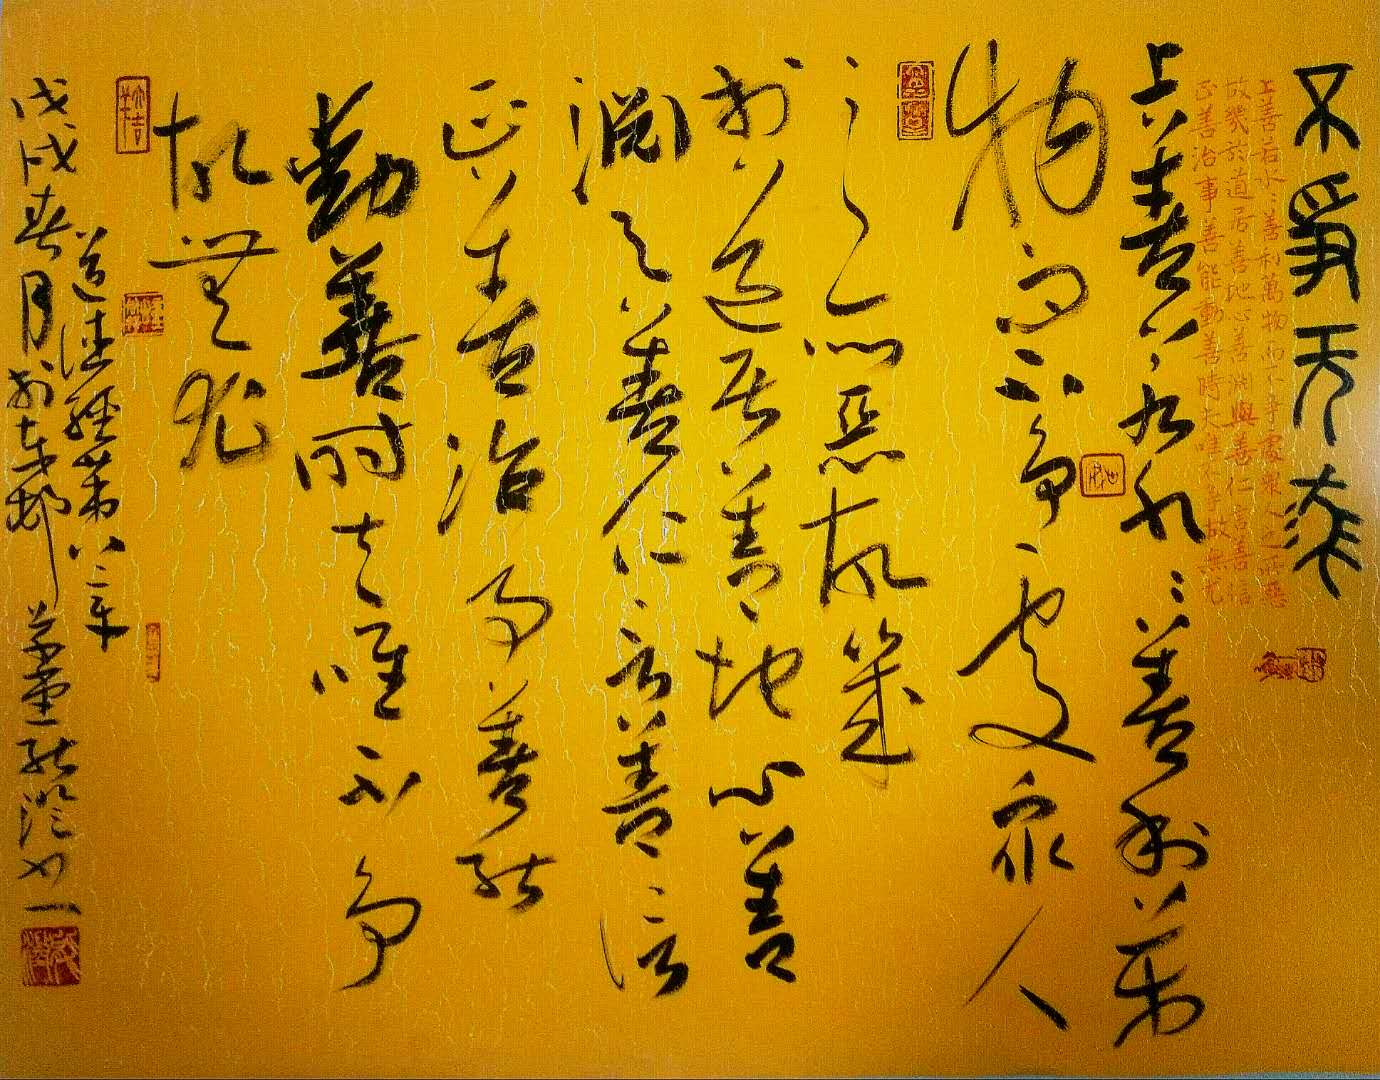 不爭无
上善若水:善利萬物而不爭處眾人之所惡
故幾於道居善地心善渊與善仁言善信
正善治事善能動善時夫唯不爭故無尤
上善若水:善利萬
物而不争處眾人
之所惡故幾
於道居善地心善
渊与善仁言善信
正善治事善能
動善時夫唯不争
故無尤
道德經第八章
戊戌春月於